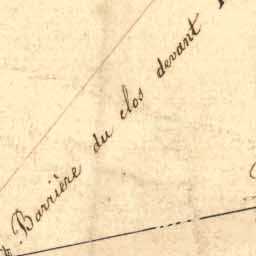 Barrière du clos devant